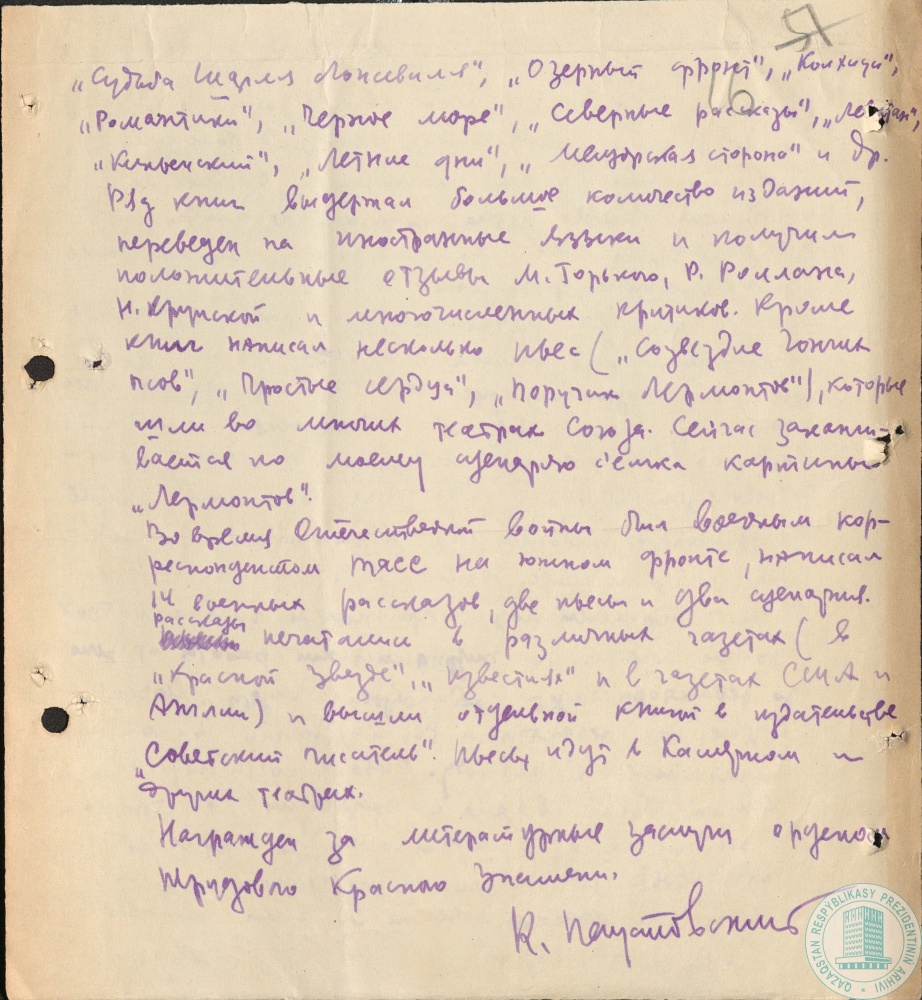 „Судьба Шарля Лонсевиля“, „Озерный фронт“, „Колхида“,
„Романтики“, „Черное море“, „Северные рассказы“, „Левитан“,
„Кипренский“, „Летние дни“, „Мещорская сторона“ и др.
Ряд книг выдержал большое количество изданий,
переведен на иностранные языки и получил
положительные отзывы М. Горького, Р. Роллана,
Н. Крупской и многочисленных критиков. Кроме
книг написал несколько пьес („Созвездие гончих
псов“, „Простые сердца“, „Поручик Лермонтов“), которые
шли во многих театрах Союза. Сейчас заканчи-
вается по моему сценарию с'емка картины
„Лермонтов“.
Во время Отечественной войны был военным кор-
респондентом ТАСС на южном фронте, написал
14 военных рассказов, две пьесы и два сценария.
рассказы
печатались в различных газетах (в
„Красной звезде“, „Известиях“ и в газетах США и
Англии) и вышли отдельной книгой в издательстве
„Советский писатель“. Пьесы идут в Камерном и
других театрах.
Награжден за литературные заслуги орденом
Трудового Красного Знамени.
К. Паустовский
QAZAQSTAN RESPÝBLIKASY PREZIDENTINIŃ ARHIVI